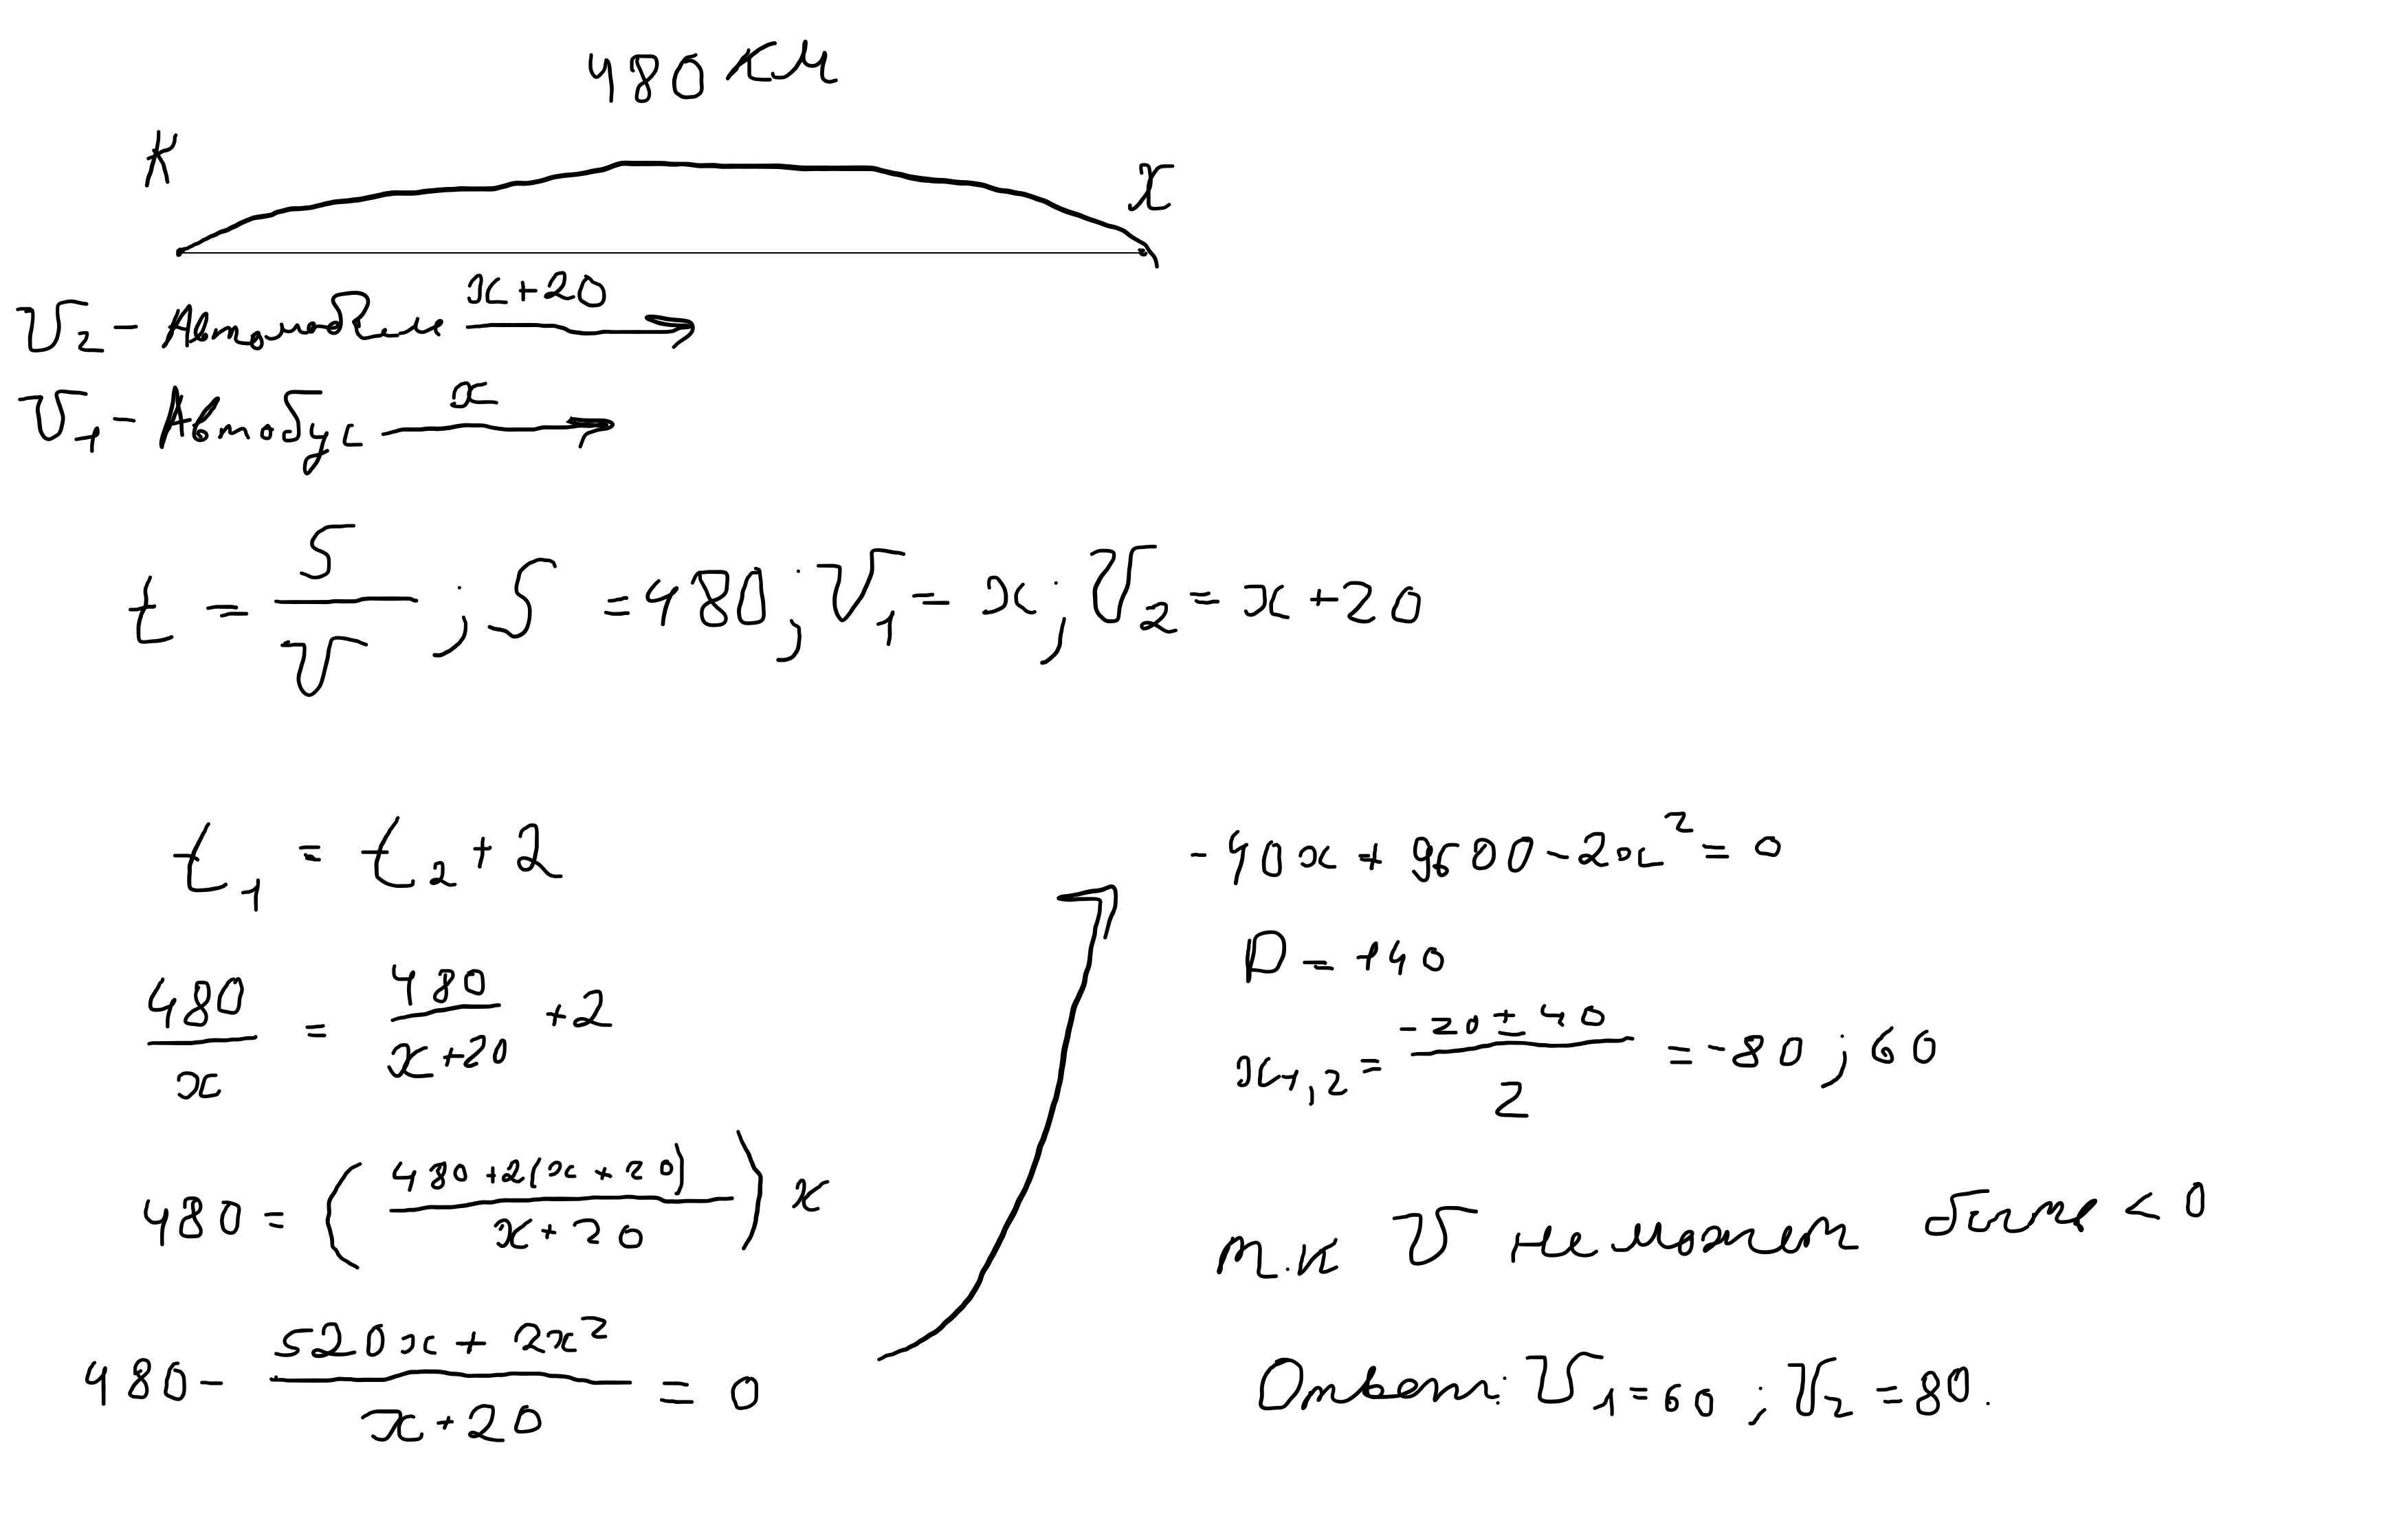 480 км
К
X
V₂ - Автомобиль x+20
V₁ - Автобус x
t = S/V ; S = 480 ; V₁ = x ; V₂ = x+20
t₁ = t₂ + 2
480/x = 480/(x+20) + 2
480 = ((480+2(x+20))/(x+20)) x
480 - (520x + 2x²)/(x+20) = 0
-40x + 9600 - 2x² = 0
D = 140
x₁,₂ = (-20 ± 40)/2 = -80 ; 60
т.к V не может быть < 0
Ответ: V₁ = 60 ; V₂ = 80.